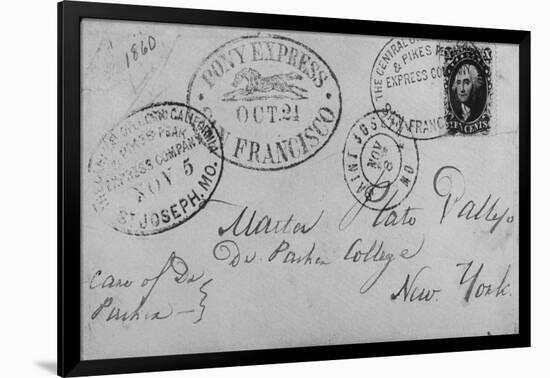 1860
PONY EXPRESS
OCT. 21
SAN FRANCISCO
THE CENTRAL
& PIKES PEAK
EXPRESS COMPANY
SAN FRANCISCO
TEN CENTS
CALIFORNIA
PIKES PEAK
EXPRESS COMPANY
NOV 5
ST JOSEPH, MO.
SAINT JOSEPH MO
NOV
Master Plato Vallejo
Dr. Parker College
New. York.
Care of Dr
Parker